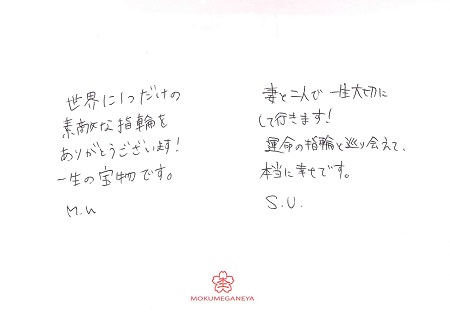 世界に1つだけの
素敵な指輪を
ありがとうございます!
一生の宝物です。
M.U
妻と二人で一生大切に
して行きます!
運命の指輪と巡り会えて、
本当に幸せです。
S.U.
MOKUMEGANEYA